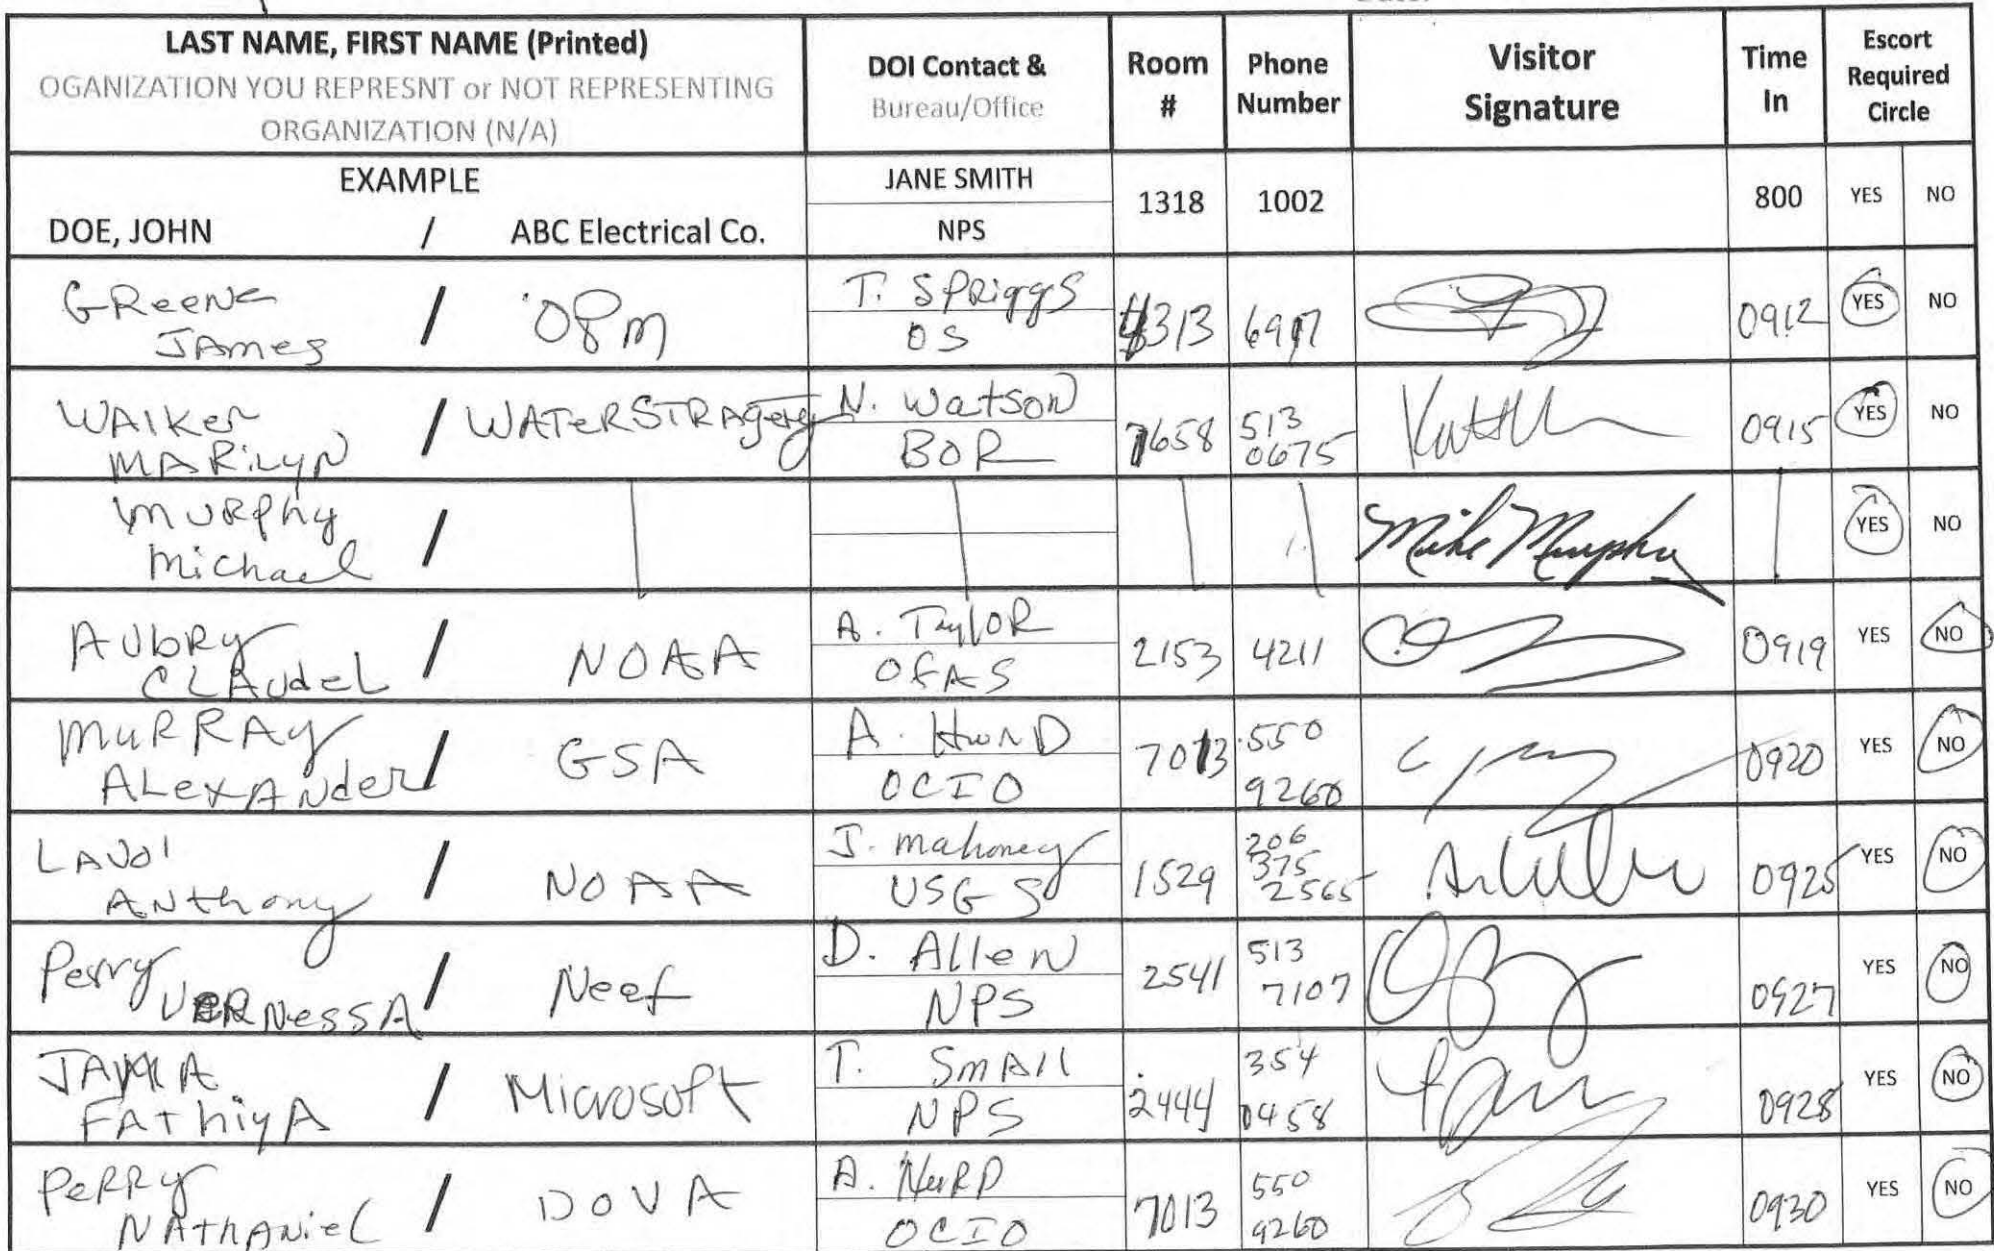 LAST NAME, FIRST NAME (Printed)
OGANIZATION YOU REPRESNT or NOT REPRESENTING
ORGANIZATION (N/A)
DOI Contact &
Bureau/Office
Room
#
Phone
Number
Visitor
Signature
Time
In
Escort
Required
Circle
EXAMPLE
DOE, JOHN / ABC Electrical Co.
JANE SMITH
NPS
1318 1002 800 YES NO
GReene
JAmes
/ OPm
T. SPRiggS
OS
4313 6917 0912 YES NO
WAlKer
MARilyN
/ WATeRSTRAgety
N. WatSoN
BOR
7658 513
0675
0915 YES NO
muRphy
michael
/
Mike Murphy
YES NO
AUbRy
CLAudeL
/ NOAA
A. TaylOR
OFAS
2153 4211 0919 YES NO
muRRAy
ALexANder
/ GSA
A.
OCIO
7013 550
9260
0920 YES NO
LAVoi
ANthony
/ NOAA
J. mahoney
USGS
1529 206
375
2565
0925 YES NO
Perry
VERNessA
/ Neef
D. AlleN
NPS
2541 513
7107
0927 YES NO
JAMA
FAThiyA
/ Microsoft
T. SmAll
NPS
2444 354
0458
0928 YES NO
PeRRy
NAthANieL
/ DOVA
A.
OCIO
7013 550
9260
0930 YES NO